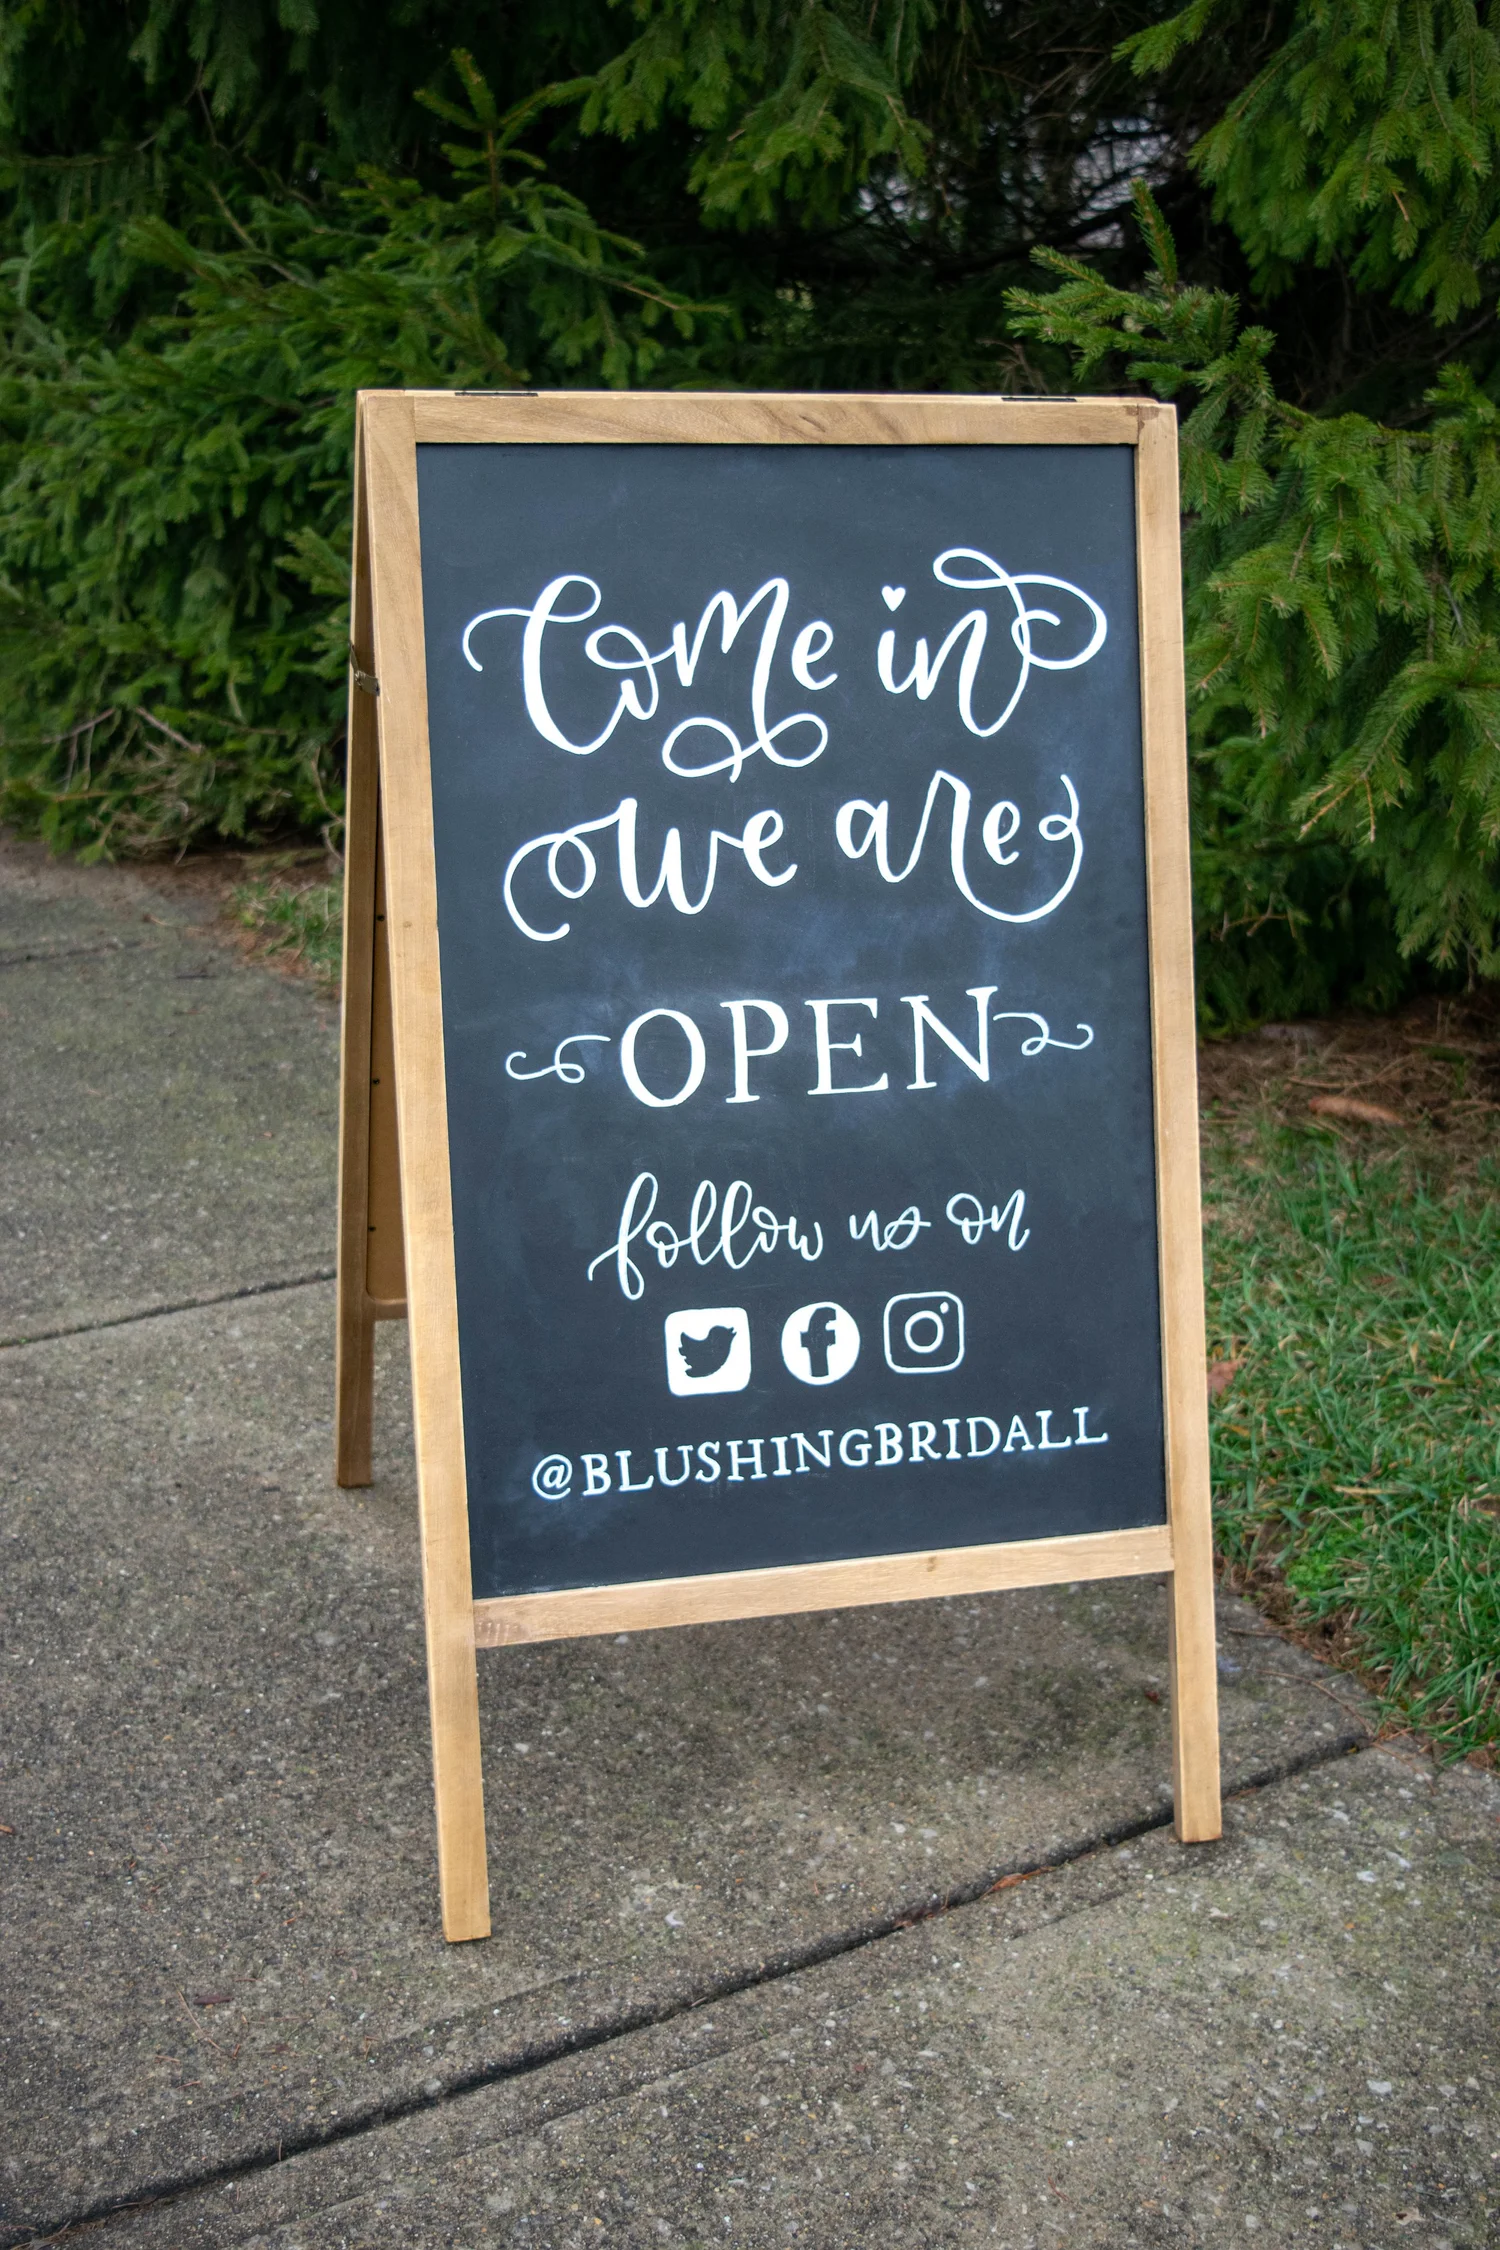 Come in
we are
OPEN
follow us on
@BLUSHINGBRIDALL